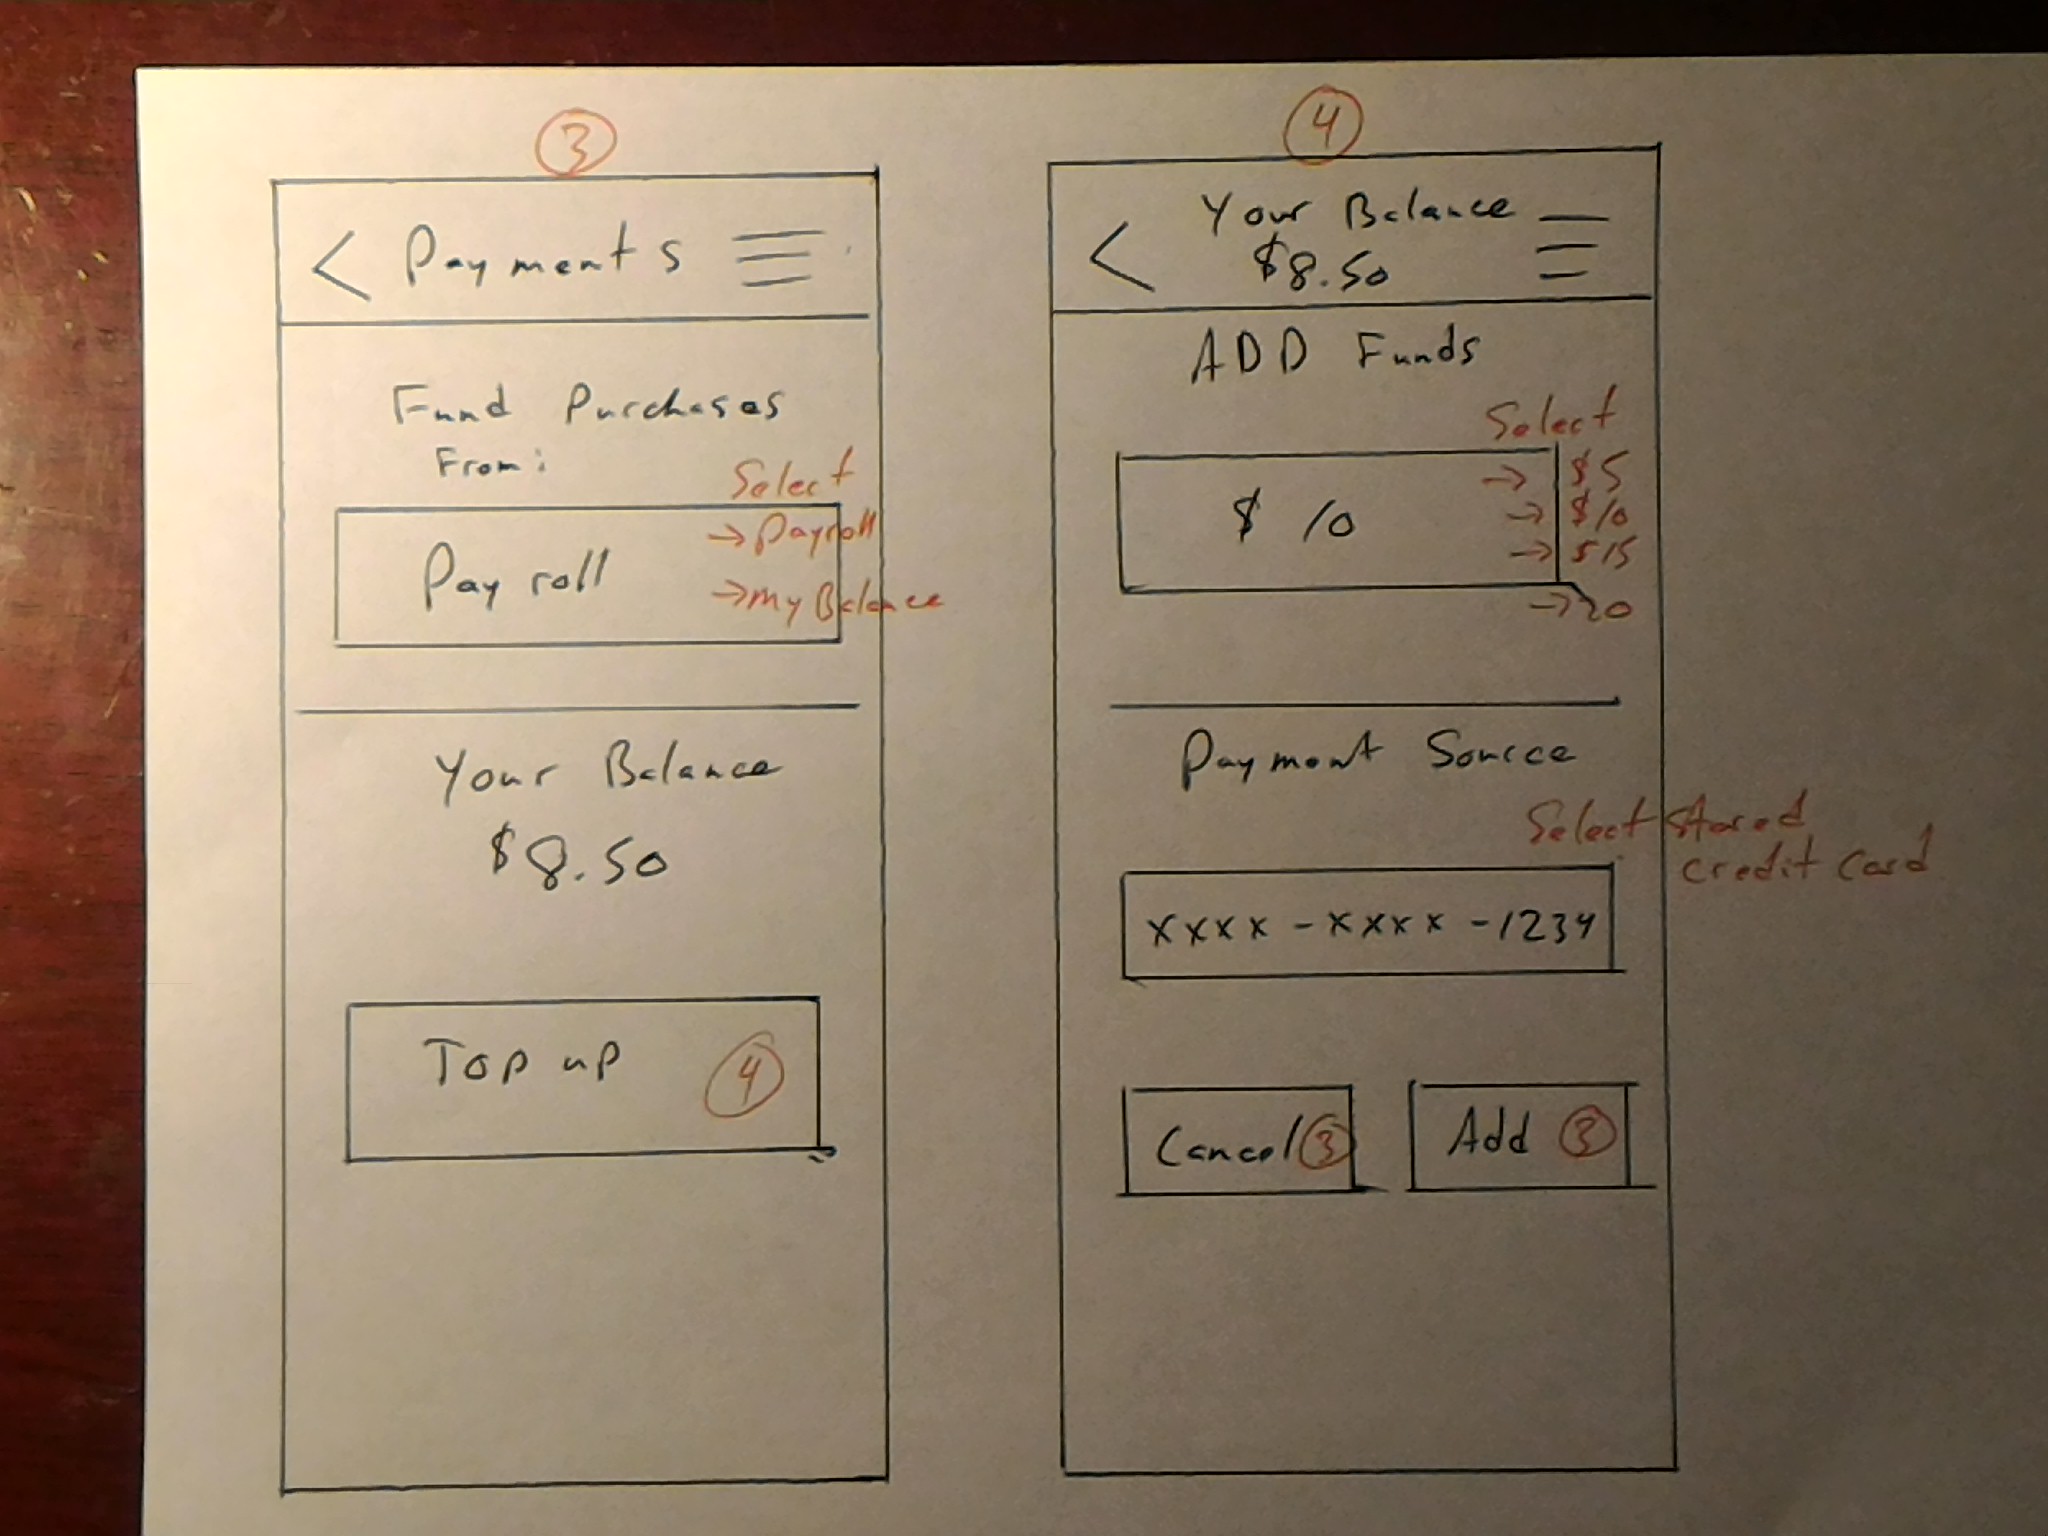 3
< Payments
Fund Purchases
From:
Select
Payroll
→ Payroll
→ My Balance
Your Balance
$8.50
Top up 4
4
< Your Balance
$8.50
ADD Funds
Select
$ 10
→ $5
→ $10
→ $15
→ 20
Payment Source
Select stored
credit card
xxxx-xxxx-1234
Cancel 3
Add 3